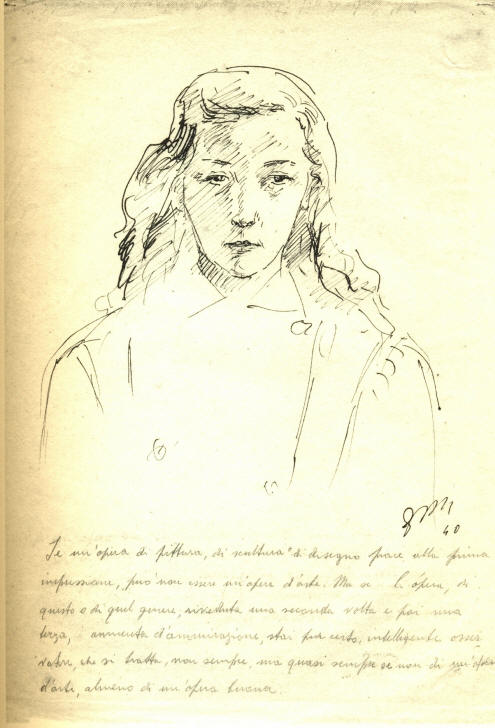 40
Se un'opera di pittura, di scultura o di disegno piace alla prima
impressione, può non essere un'opera d'arte. Ma se l'opera, di
questo o di quel genere, riveduta una seconda volta e poi una
terza, aumenta d'ammirazione, stai pur certo, intelligente osser
vatore, che si tratta, non sempre, ma quasi sempre se non di un'opera
d'arte, almeno di un'opera buona.